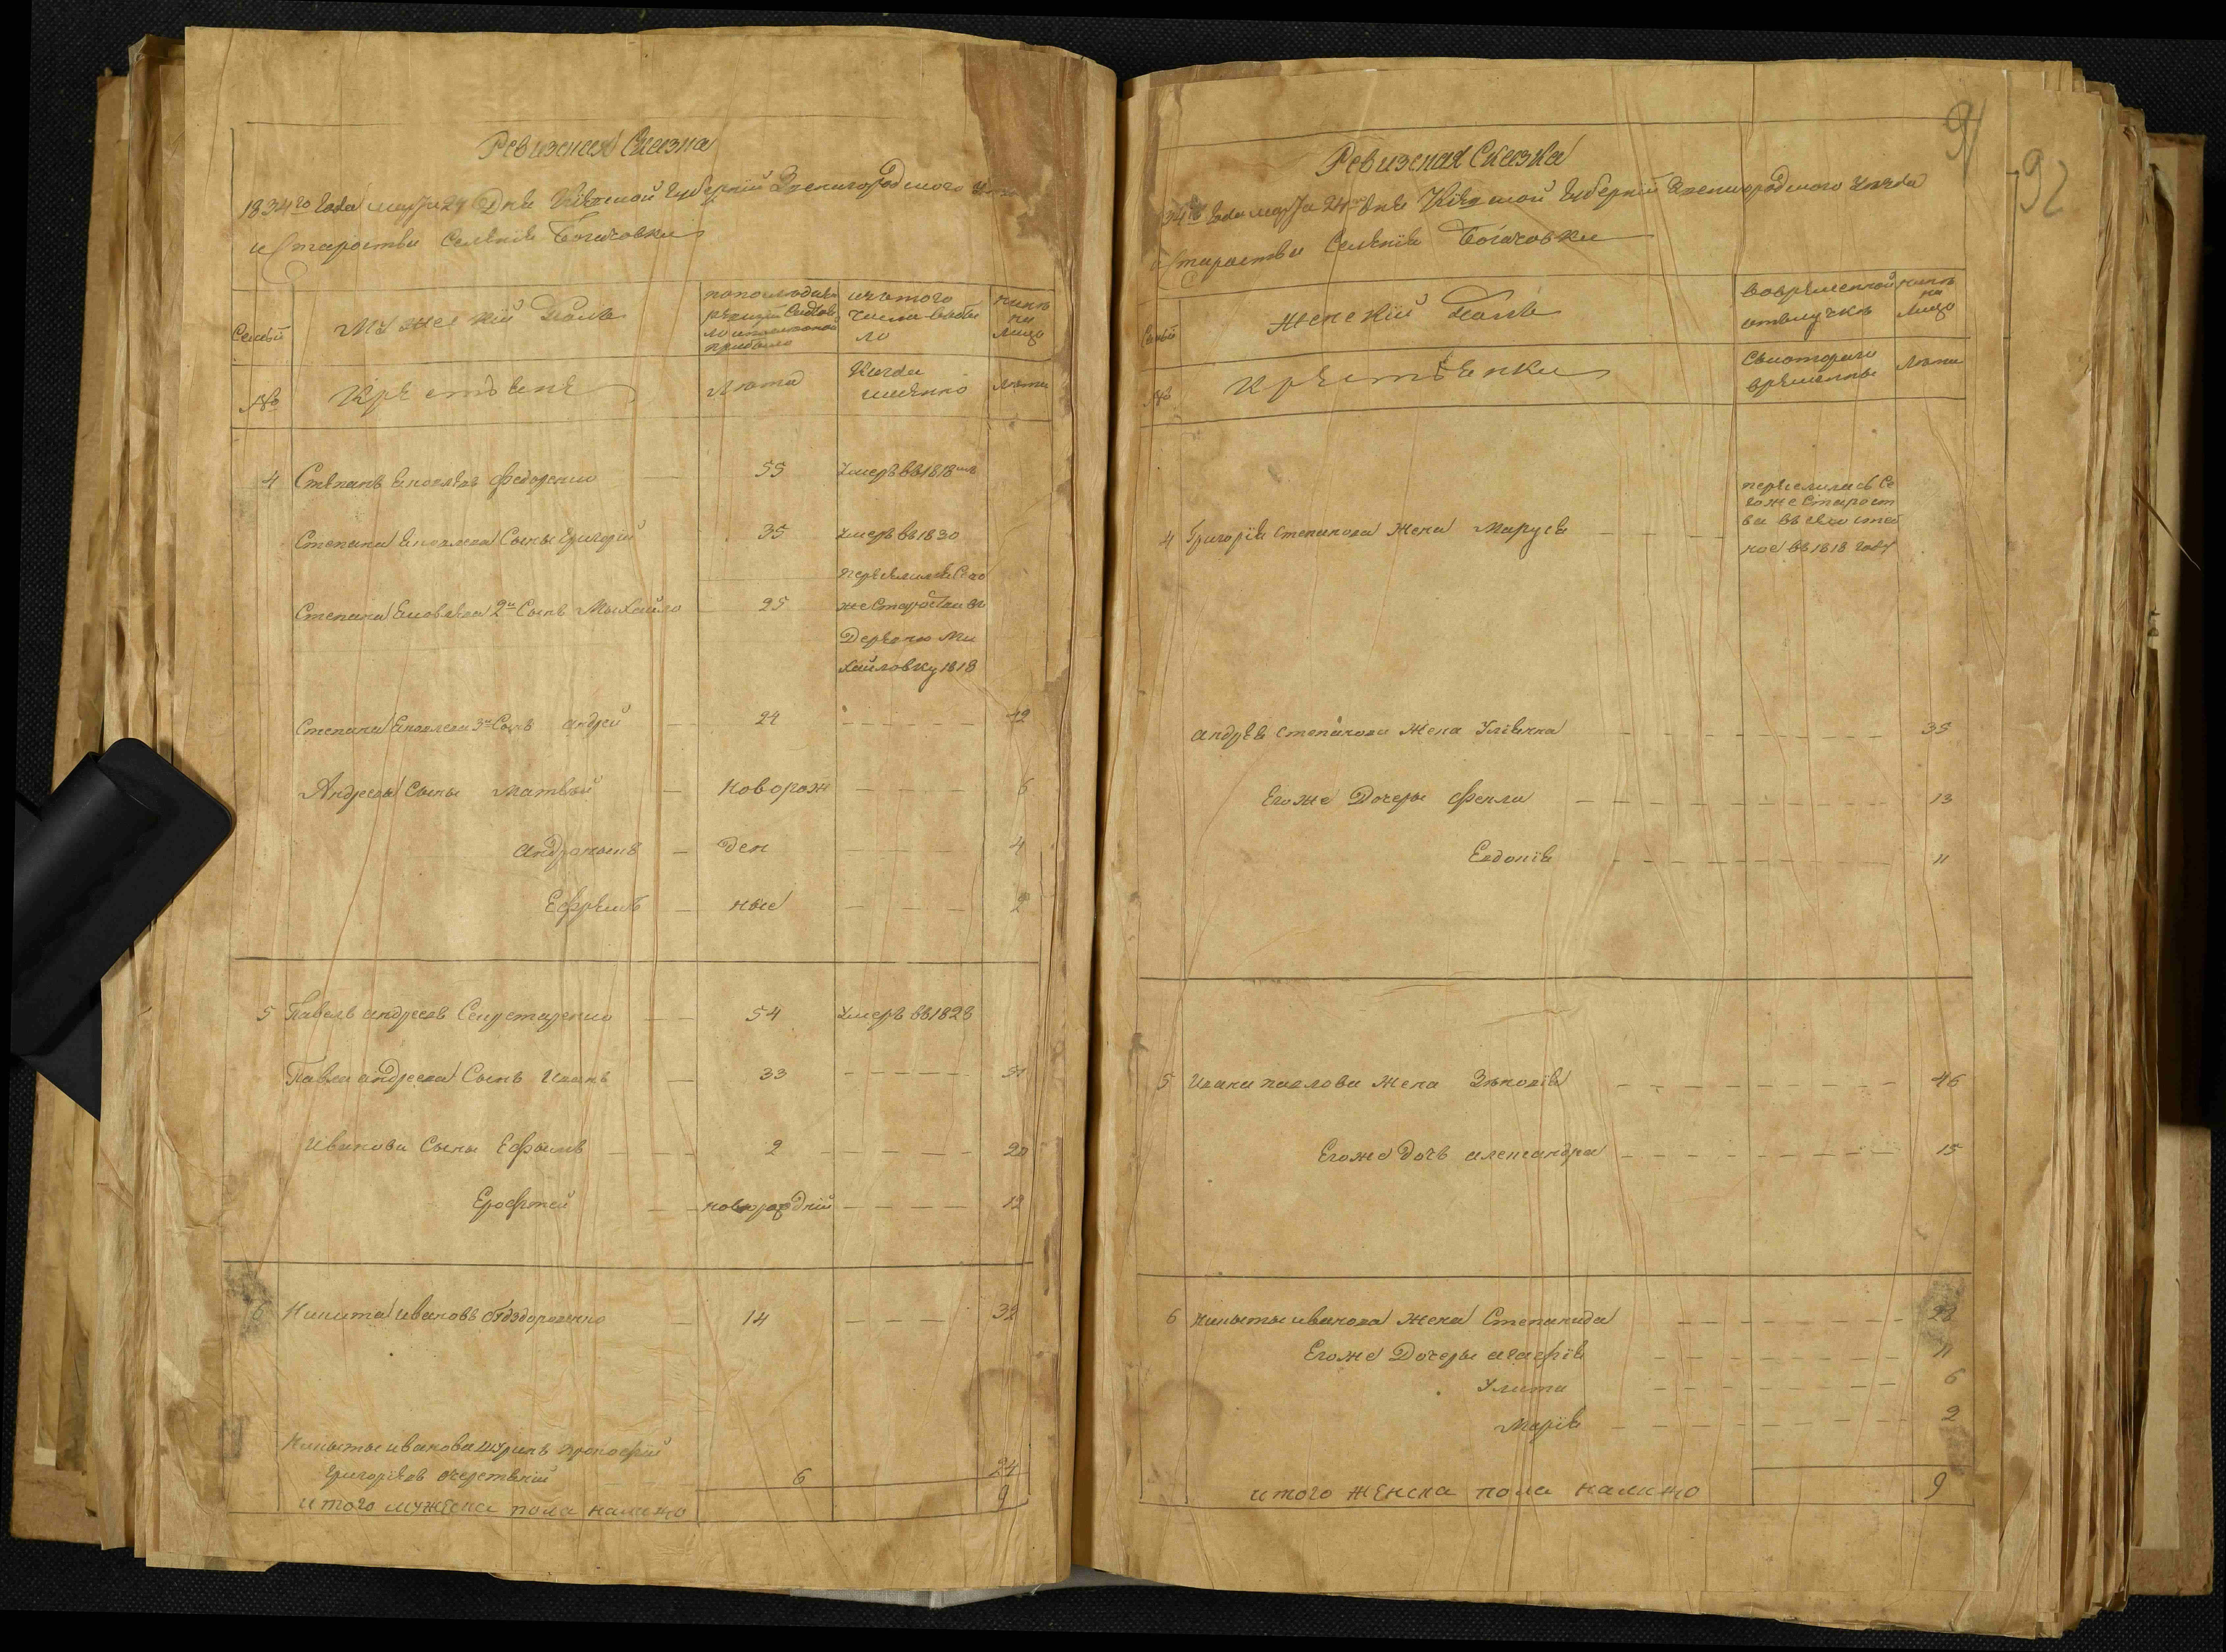 Ревизская Сказка
1834го Года марта 24 Дня Кіевской Губерніи Звенигородского
Староства Селенія Богачовки
Семьи
Мужескій Полъ
по последней ревизіи состояло и после оной прибыло
изъ того числа выбыло
ныне на лицо
№
Крестьяне
Лета
Когда именно
Лета
4 Степанъ Яковлевъ Федоренко 55 Умеръ въ 1818мъ
Степана Яковлева Сынъ Григорій 35 Умеръ въ 1830
Степана Яковлева 2й Сынъ Михайло 25
переселился Сего
же Староства въ
Деревню Ми
хайловку 1818
Степана Яковлева 3й Сынъ Андрей 24
Андреева Сыны Матвей новорож 6
Андроникъ ден 4
Ефремъ ные 2
5 Павелъ Андреевъ Секретаренко 54 Умеръ въ 1828
Павла Андреева Сынъ Иванъ 33
Иванова Сыны Ефимъ 2 20
Ерофтей 12
6 Никита Ивановъ 14 32
Никиты Иванова шуринъ Прокофій
Григоріевъ 6 24
итого мужеска пола налицо 9
91
192
Ревизская Сказка
34го Года марта 24го Дня Кіевской Губерніи Звенигородского Уезда
Староства Селенія Богачовки
Семьи
Женскій Полъ
во временной отлучке
ныне на лицо
№
Крестьянки
С которого времени
Лета
4 Григорія Степанова Жена Маруся
переселилась Се
гоже Старост
ва въ
въ 1818 году
Андрея Степанова Жена Уліянна 35
Егоже Дочеры Фекла 13
Евдокія 11
5 Ивана Павлова Жена Зеновія 46
Егоже Дочь Александра 15
6 Никиты Иванова Жена Степанида 28
Егоже Дочеры Агафія 11
Улита 6
Марія 2
итого женска пола налицо 9